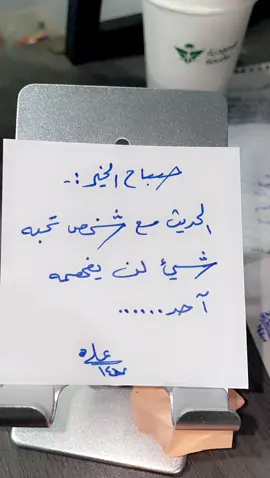 صباح الخير :-
الحديث مع شخص تحبه
شيئ لن يفهمه
أحد......